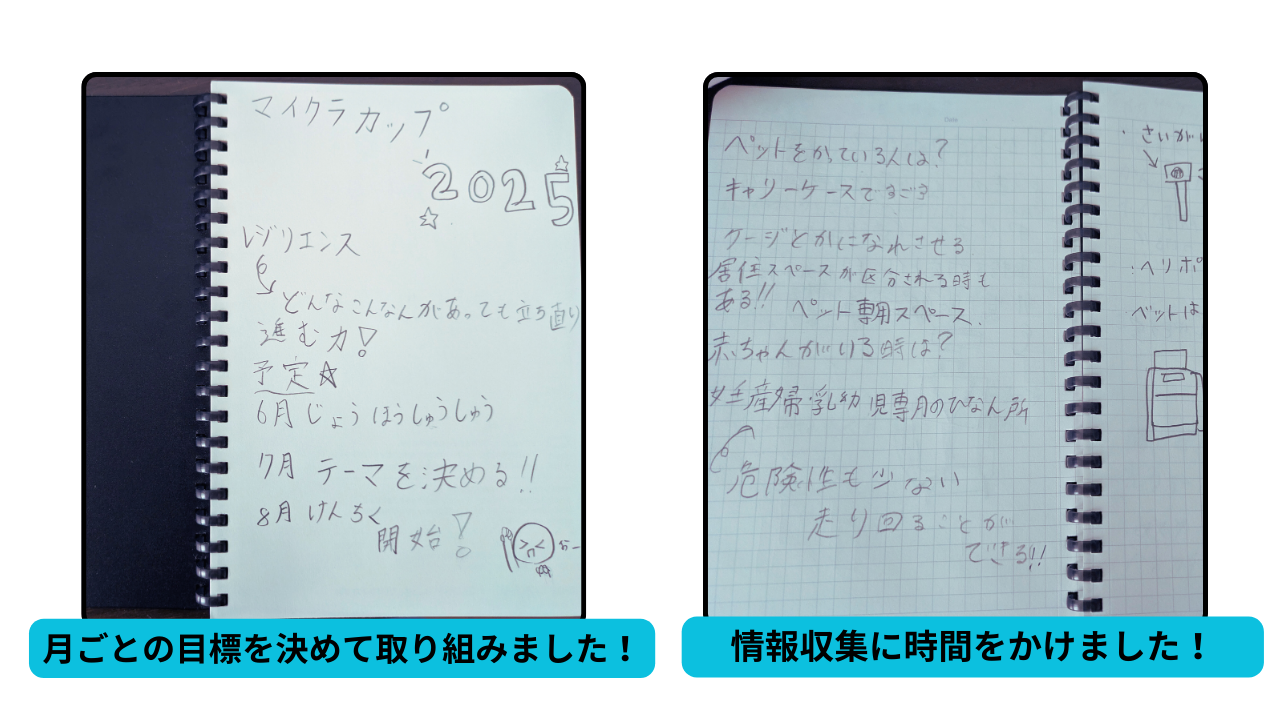 マイクラカップ
2025
レジリエンス
どんなこんなんがあっても立ち直り
進む力!
予定☆
6月じょうほうしゅうしゅう
7月 テーマを決める!!
8月 けんちく
開始!
おー
月ごとの目標を決めて取り組みました！
ペットをかている人は?
キャリーケースですごす
ケージとかになれさせる
居住スペースが区分される時も
ある!! ペット専用スペース.
赤ちゃんがいる時は?
妊産婦・乳幼児専用のひなん所
危険性も少ない
走り回ることが
できる!!
さいがい
・ヘリポ
ペットは
情報収集に時間をかけました！